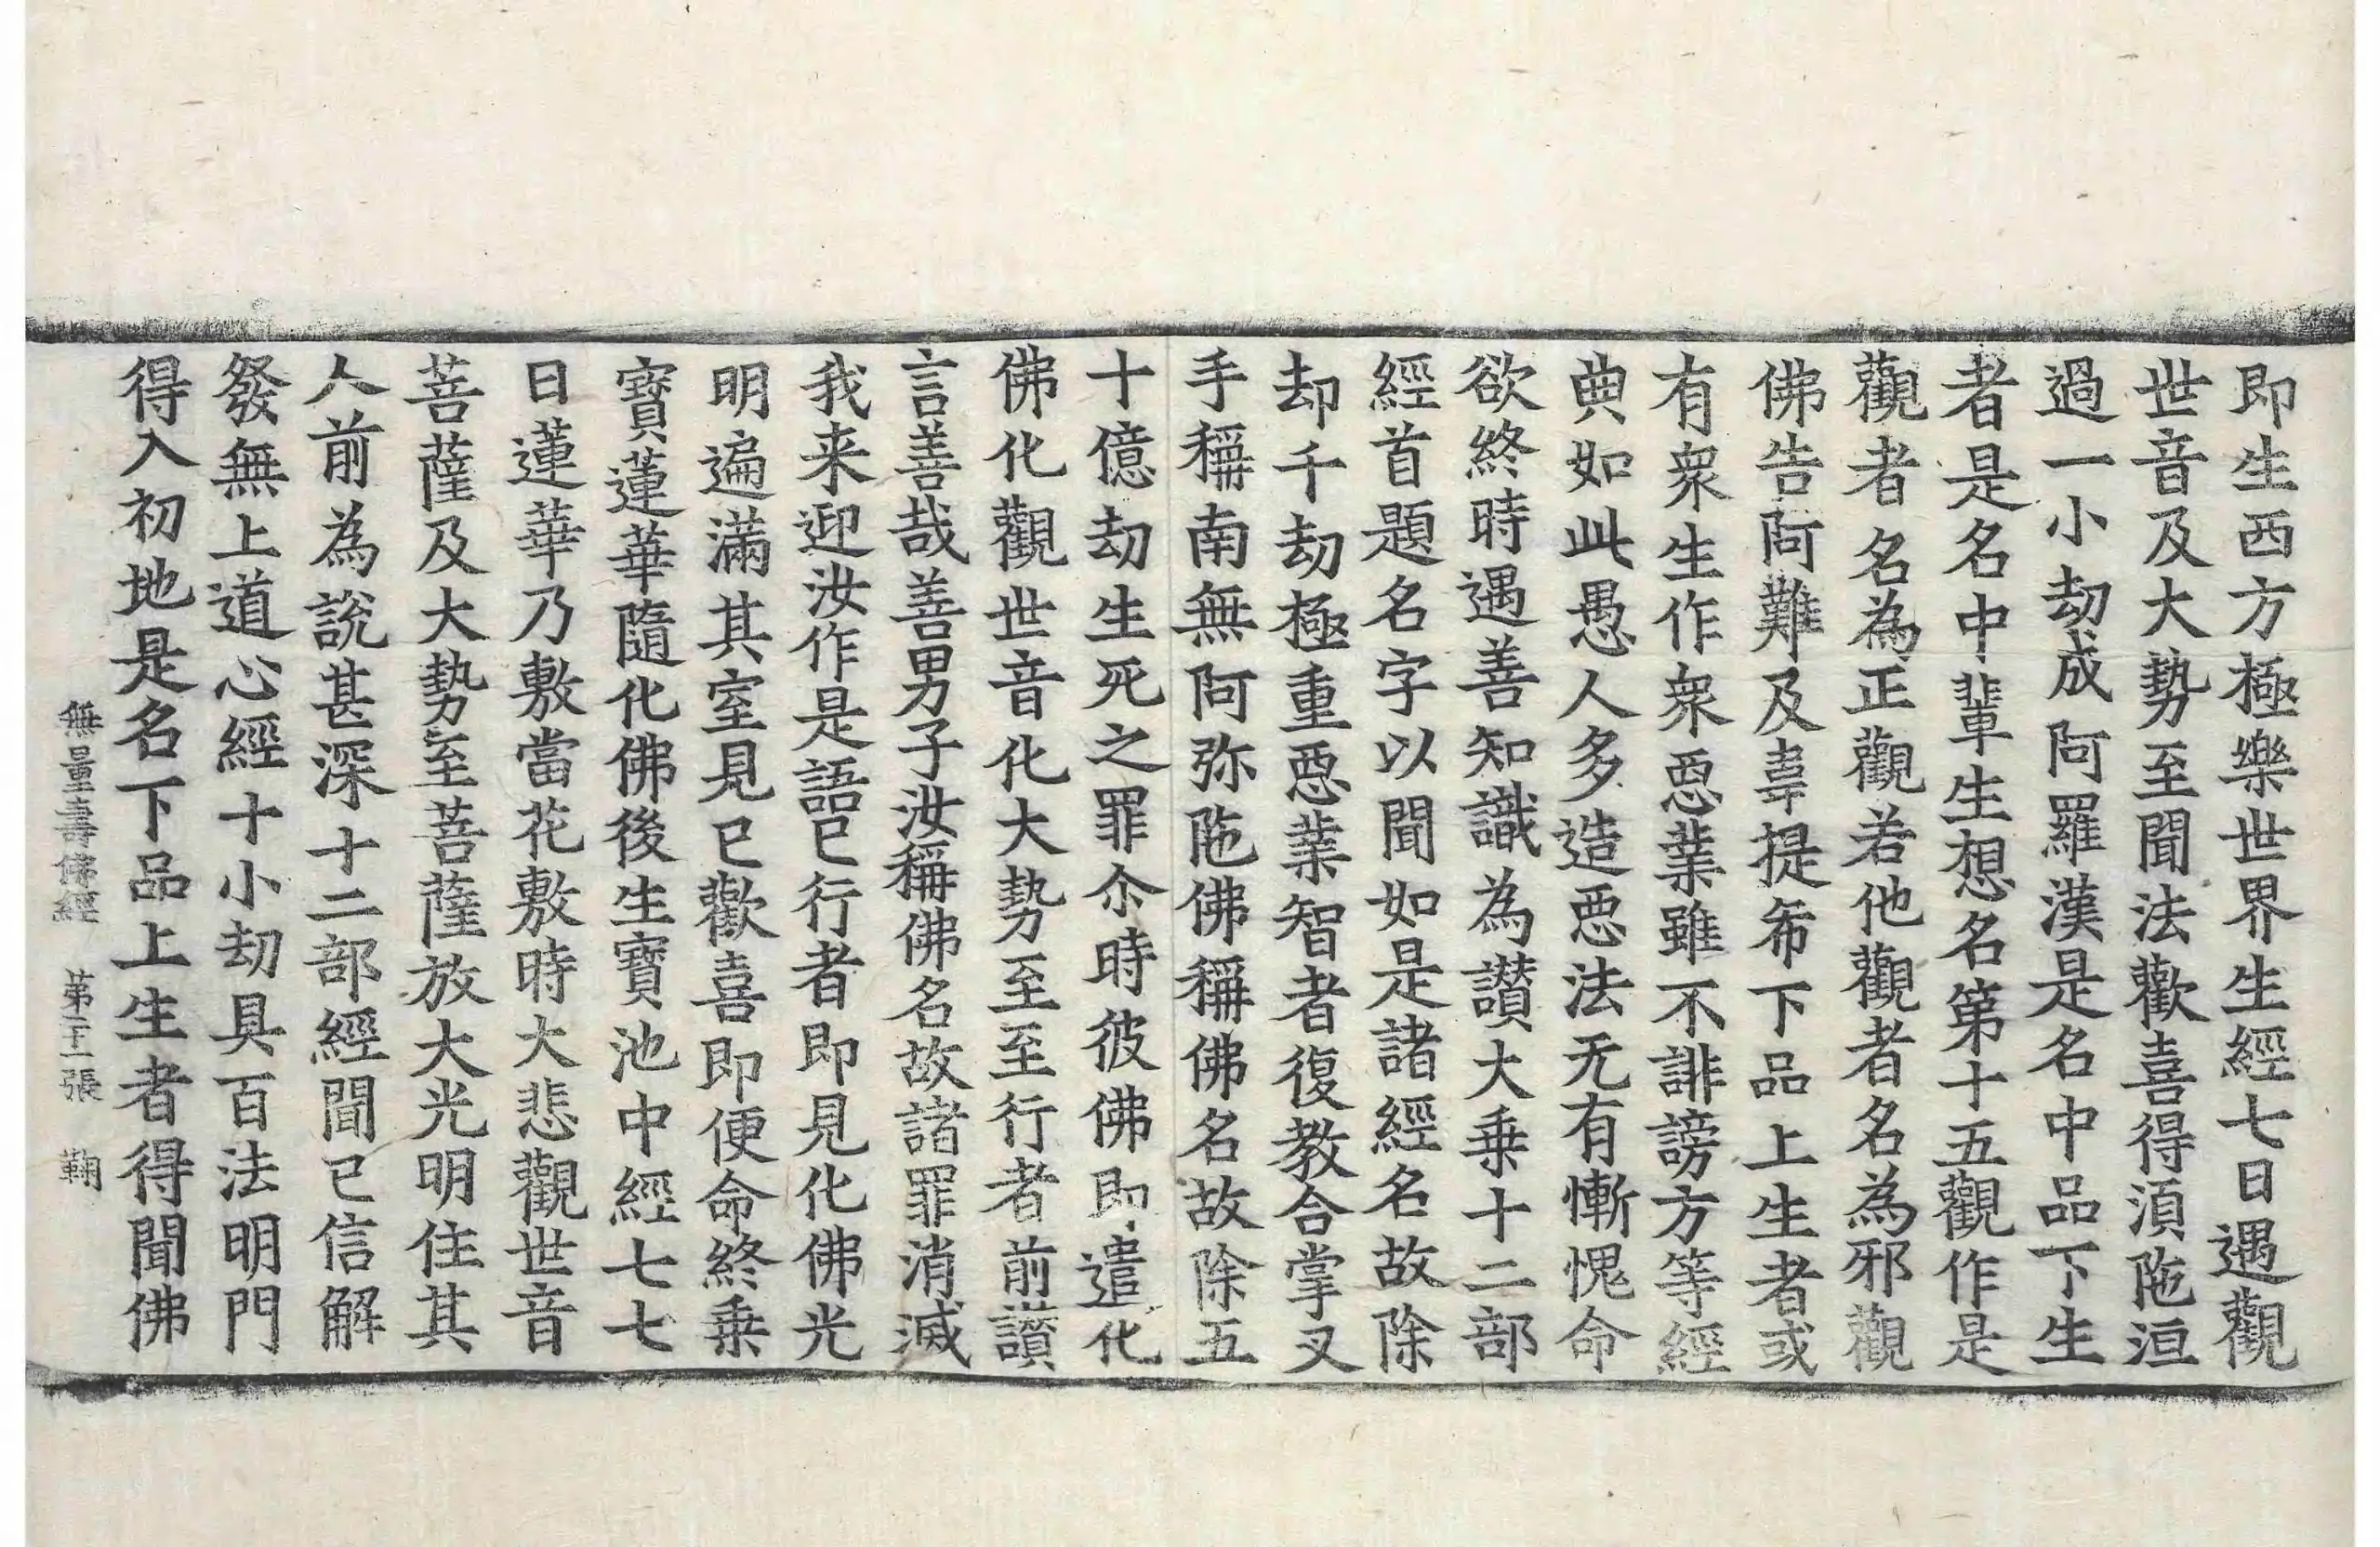 即生西方極樂世界生經七日遇觀
世音及大勢至聞法歡喜得湏陁洹
過一小劫成阿羅漢是名中品下生
者是名中輩生想名第十五觀作是
觀者名為正觀若他觀者名為邪觀
佛告阿難及韋提希下品上生者或
有衆生作衆惡業雖不誹謗方等經
典如此愚人多造惡法无有慚愧命
欲終時遇善知識為讃大乗十二部
經首題名字以聞如是諸經名故除
却千劫極重惡業智者復教合掌叉
手稱南無阿弥陁佛稱佛名故除五
十億劫生死之罪尒時彼佛即遣化
佛化觀世音化大勢至至行者前讃
言善哉善男子汝稱佛名故諸罪消滅
我来迎汝作是語已行者即見化佛光
明遍滿其室見已歡喜即便命終乗
寶蓮華隨化佛後生寶池中經七七
日蓮華乃敷當花敷時大悲觀世音
菩薩及大勢至菩薩放大光明住其
人前為說甚深十二部經聞已信解
發無上道心經十小劫具百法明門
得入初地是名下品上生者得聞佛
無量壽佛經 第王張 鞠